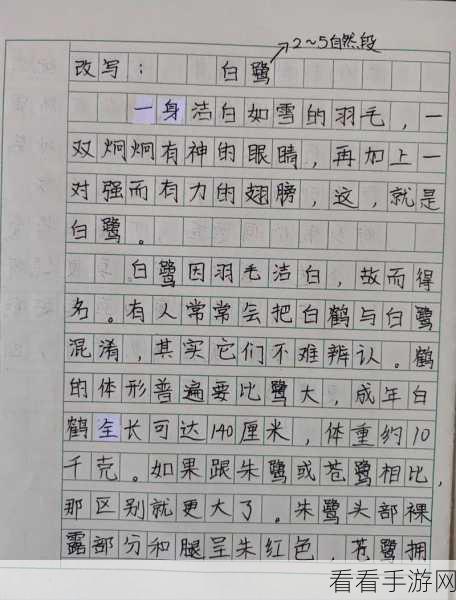 2~5自然段
改写: 白鹭
一身洁白如雪的羽毛,一
双炯炯有神的眼睛,再加上一
对强而有力的翅膀,这,就是
白鹭。
白鹭因羽毛洁白,故而得
名。有人常常会把白鹤与白鹭
混淆,其实它们不难辨认。鹤
的体形普遍要比鹭大,成年白
鹤全长可达140厘米,体重约10
千克。如果跟朱鹭或苍鹭相比,
那区别就更大了。朱鹭头部裸
露部分和腿呈朱红色,苍鹭拥
看看手游网
www.kkssyy.com